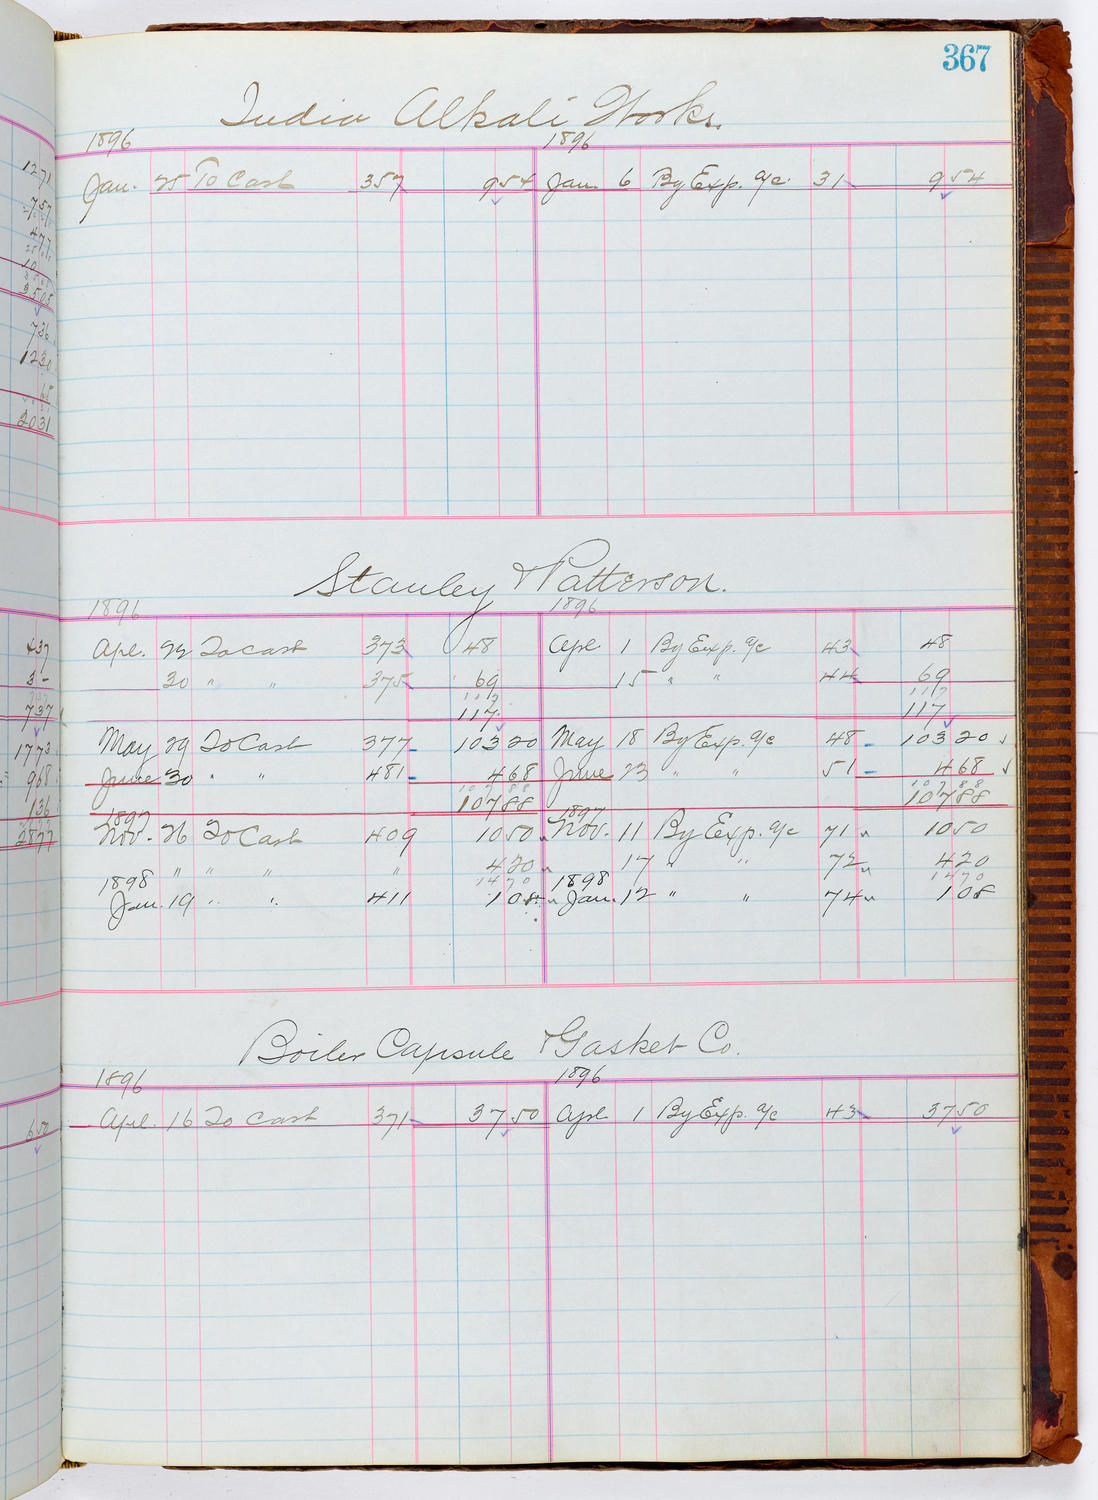 367
India Alkali Works.
1896 1896
Jan. 25 To Cash 357 9 54 Jan. 6 By Exp. a/c. 31 9 54
Stanley & Patterson.
1896 1896
Apl. 22 To Cash 373 48 Apl 1 By Exp. a/c 43 48
30 " " 375 69 15 " " 44 69
117 117
117 117
May 29 To Cash 377 103 20 May 18 By Exp. a/c 48 103 20
June 30 " " 481 4 68 June 23 " " 51 4 68
107 88 107 88
107 88 107 88
1897 1897
Nov. 26 To Cash 409 10 50 Nov. 11 By Exp. a/c 71 10 50
" " " " 4 20 17 " " 72 4 20
14 70 14 70
1898 1898
Jan. 19 " " 411 1 08 Jan. 12 " " 74 1 08
Boiler Capsule & Gasket Co.
1896 1896
Apl. 16 To Cash 371 37 50 Apl 1 By Exp. a/c 43 37 50
1271
757
477
10
3505
736
1230
68
2031
437
3 -
737
1773
968
136
2877
650